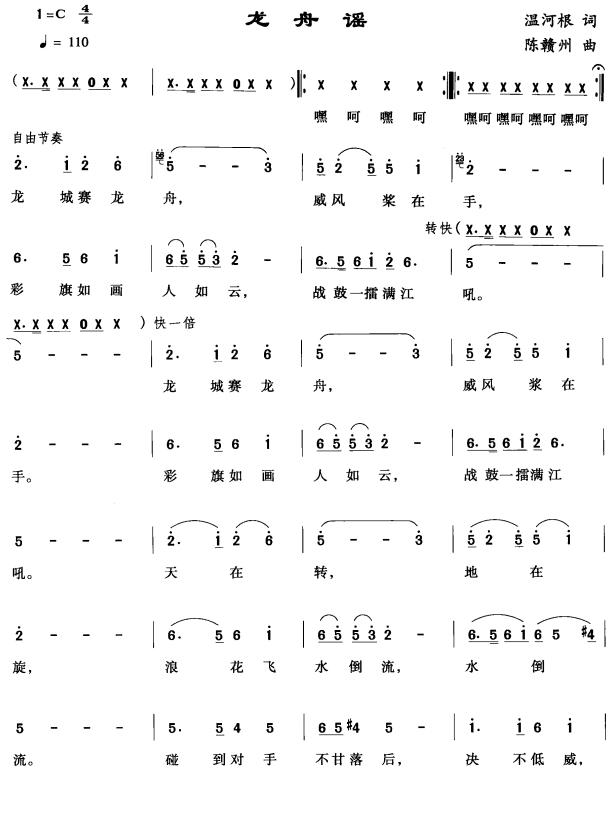 1=C 4/4
龙舟谣
温河根 词
♩= 110
陈赣州 曲
(X. X X X 0 X X | X. X X X 0 X X ) 𝄆 X X X X 𝄇𝄆 X X X X X X X X 𝄇
嘿 呵 嘿 呵 嘿呵 嘿呵 嘿呵 嘿呵
自由节奏
2. 1 2 6 | 5 - - 3 | 5 2 5 5 1 | 2 - - -
龙 城赛 龙 舟, 威风 桨在 手,
转快 (X. X X X 0 X X
6. 5 6 1 | 6 5 5 3 2 - | 6. 5 6 1 2 6. | 5 - - -
彩 旗如 画 人 如 云, 战 鼓一擂满江 吼。
X. X X X 0 X X ) 快一倍
5 - - - | 2. 1 2 6 | 5 - - 3 | 5 2 5 5 1
龙 城赛 龙 舟, 威风 浆 在
2 - - - | 6. 5 6 1 | 6 5 5 3 2 - | 6. 5 6 1 2 6.
手。 彩 旗如 画 人 如 云, 战 鼓一擂满江
5 - - - | 2. 1 2 6 | 5 - - 3 | 5 2 5 5 1
吼。 天 在 转, 地 在
2 - - - | 6. 5 6 1 | 6 5 5 3 2 - | 6. 5 6 1 6 5 #4
旋, 浪 花 飞 水 倒 流, 水 倒
5 - - - | 5. 5 4 5 | 6 5 #4 5 - | 1. 1 6 1
流。 碰 到对 手 不甘落 后, 决 不低 威,